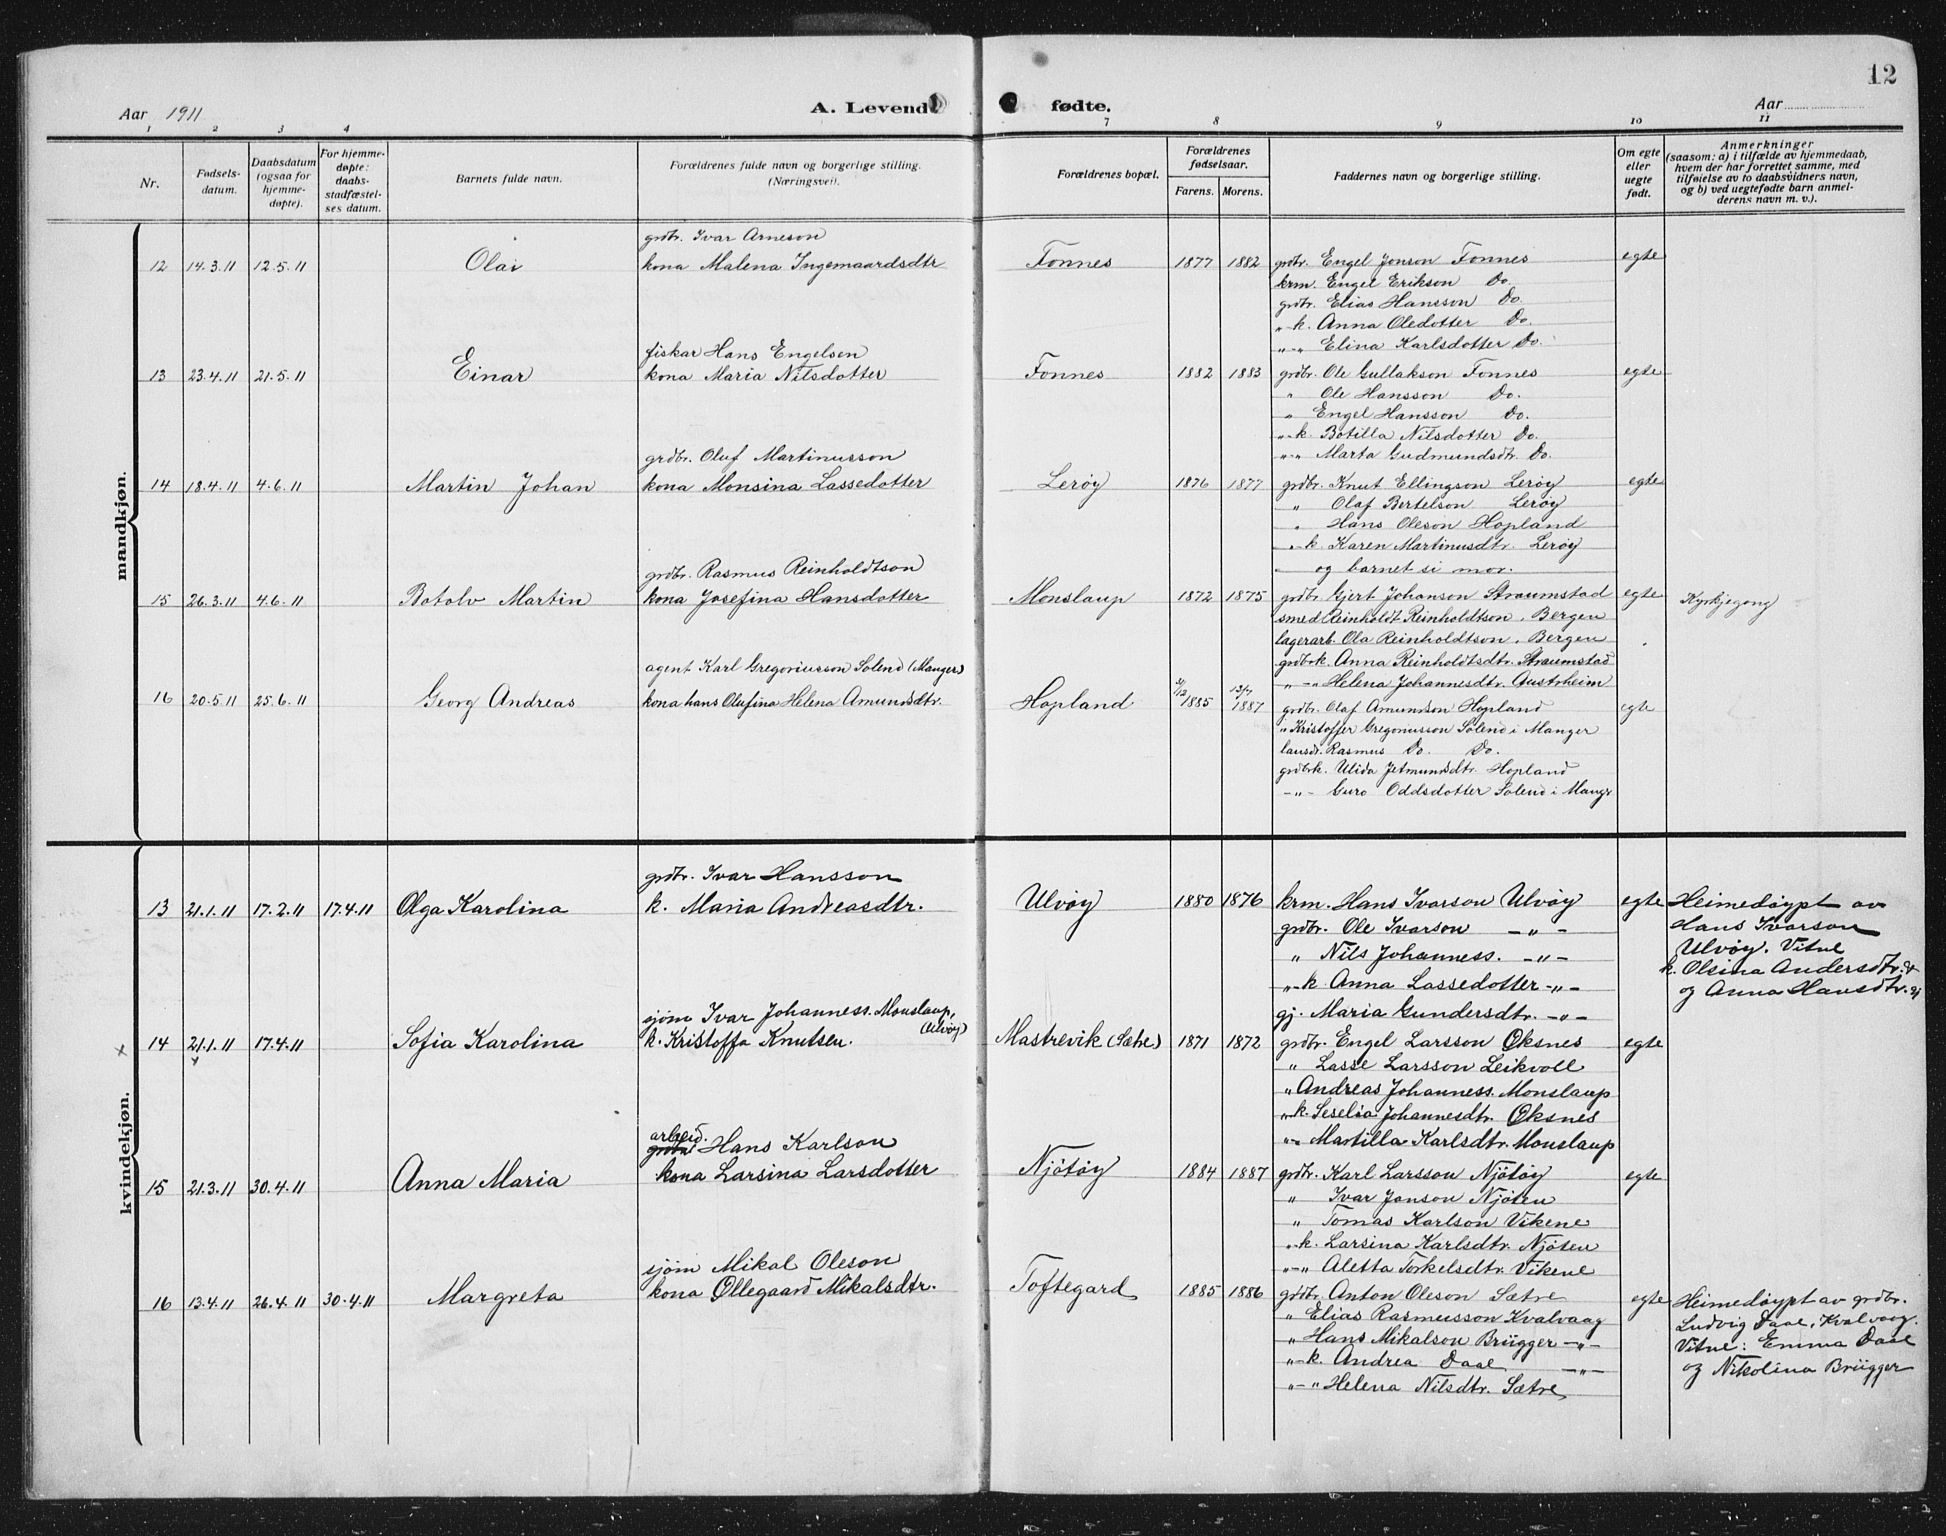 12
Aar 1911 A. Levende fødte. Aar
1 2 3 4 7 8 9 10 11
Nr. Fødselsdatum. Daabsdatum (ogsaa for hjemmedøpte). For hjemmedøpte: daabsstadfæstelses datum. Barnets fulde navn. Forældrenes fulde navn og borgerlige stilling. (Næringsvei). Forældrenes bopæl. Forældrenes fødselsaar. Farens. Morens. Faddernes navn og borgerlige stilling. Om egte eller uegte født. Anmerkninger (saasom: a) i tilfælde av hjemmedaab, hvem der har forrettet samme, med tilføielse av to daabsvidners navn, og b) ved uegtefødte barn anmelderens navn m. v.).
mandkjøn.
grdbr. Ivar Arneson
12 14.3.11 12.5.11 Olai kona Malena Ingemaardsdtr Fonnes 1877 1882 grdbr. Engel Jonson Fonnes egte
krm. Engel Erikson Do.
grdbr. Elias Hansson Do.
" k. Anna Oledotter Do.
" " Elina Karlsdotter Do.
fiskar Hans Engelsen
13 23.4.11 21.5.11 Einar kona Maria Nilsdotter Fonnes 1882 1883 grdbr. Ole Gullakson Fonnes egte
" Ole Hansson Do.
" Engel Hansson Do.
" k. Botilla Nilsdotter Do.
" " Marta Gudmundsdtr Do.
grdbr. Oluf Martinusson
14 18.4.11 4.6.11 Martin Johan kona Monsina Lassedotter Lerøy 1876 1877 grdbr. Knut Ellingson Lerøy egte
" Olaf Bertelson Lerøy
" Hans Oleson Hopland
" k. Karen Martinusdtr. Lerøy
og barnet si mor.
grdbr. Rasmus Reinholdtson
15 26.3.11 4.6.11 Botolv Martin kona Josefina Hansdotter Monslaup 1872 1875 grdbr. Gjert Johanson Straumstad egte Kyrkjegong
smed Reinholdt Reinholdtson, Bergen
lagerarb. Ola Reinholdtson, Bergen
grdbrk. Anna Reinholdtsdtr. Straumstad
" " Helena Johannesdtr. Austrheim
agent Karl Gregoriusson Solend (Manger)
16 20.5.11 25.6.11 Georg Andreas kona hans Olufina Helena Amundsdtr. Hopland 1885 1887 grdbr. Olaf Amundson Hopland egte
" Kristoffer Gregoriusson Solend i Manger
lausdr. Rasmus Do. Do.
grdbrk. Ulida Jetmundsdtr. Hopland
" Guro Oddsdotter Solend i Mangr
kvindekjøn.
grdbr. Ivar Hansson
13 21.1.11 17.2.11 17.4.11 Olga Karolina k. Maria Andreasdtr. Ulvøy 1880 1876 krm. Hans Ivarson Ulvøy egte Heimedøypt av
grdbr. Ole Ivarson — " — Hans Ivarson
" Nils Johanness. — " — Ulvøy. Vitne
" k. Anna Lassedotter — " — k. Olsina Andersdtr.
gj. Maria Gundersdtr. — " — og Anna Hansdtr.
sjøm Ivar Johanness. Monslaup, (Ulvøy)
x 14 21.1.11 x 17.4.11 Sofia Karolina k. Kristoffa Knutsen. Mastrevik (Sætre) 1871 1872 grdbr. Engel Larsson Øksnes egte
" Lasse Larsson Leikvoll
" Andreas Johanness. Monslaup
" k. Seselia Johannesdtr. Øksnes
" " Martilla Karlsdtr. Monslaup
arbeid. Hans Karlson
15 21.3.11 30.4.11 Anna Maria kona Larsina Larsdotter Njøtøy 1884 1887 grdbr. Karl Larsson Njøtøy egte
" Ivar Janson Njøten
" Tomas Karlson Vikene
" k. Larsina Karlsdtr. Njøten
" " Aletta Torkelsdtr. Vikene
sjøm Mikal Oleson
16 13.4.11 26.4.11 30.4.11 Margreta kona Øllegaard Mikalsdtr. Toftegard 1885 1886 grdbr. Anton Oleson Sætre egte Heimedøypt av grdbr.
" Elias Rasmusson Kvalvaag Ludvig Daae, Kvalvaag.
" Hans Mikalson Brügger — " — Vitne: Emma Daae
" k. Andrea Daae — " — og Nikolina Brügger
" " Helena Nilsdtr. Sætre